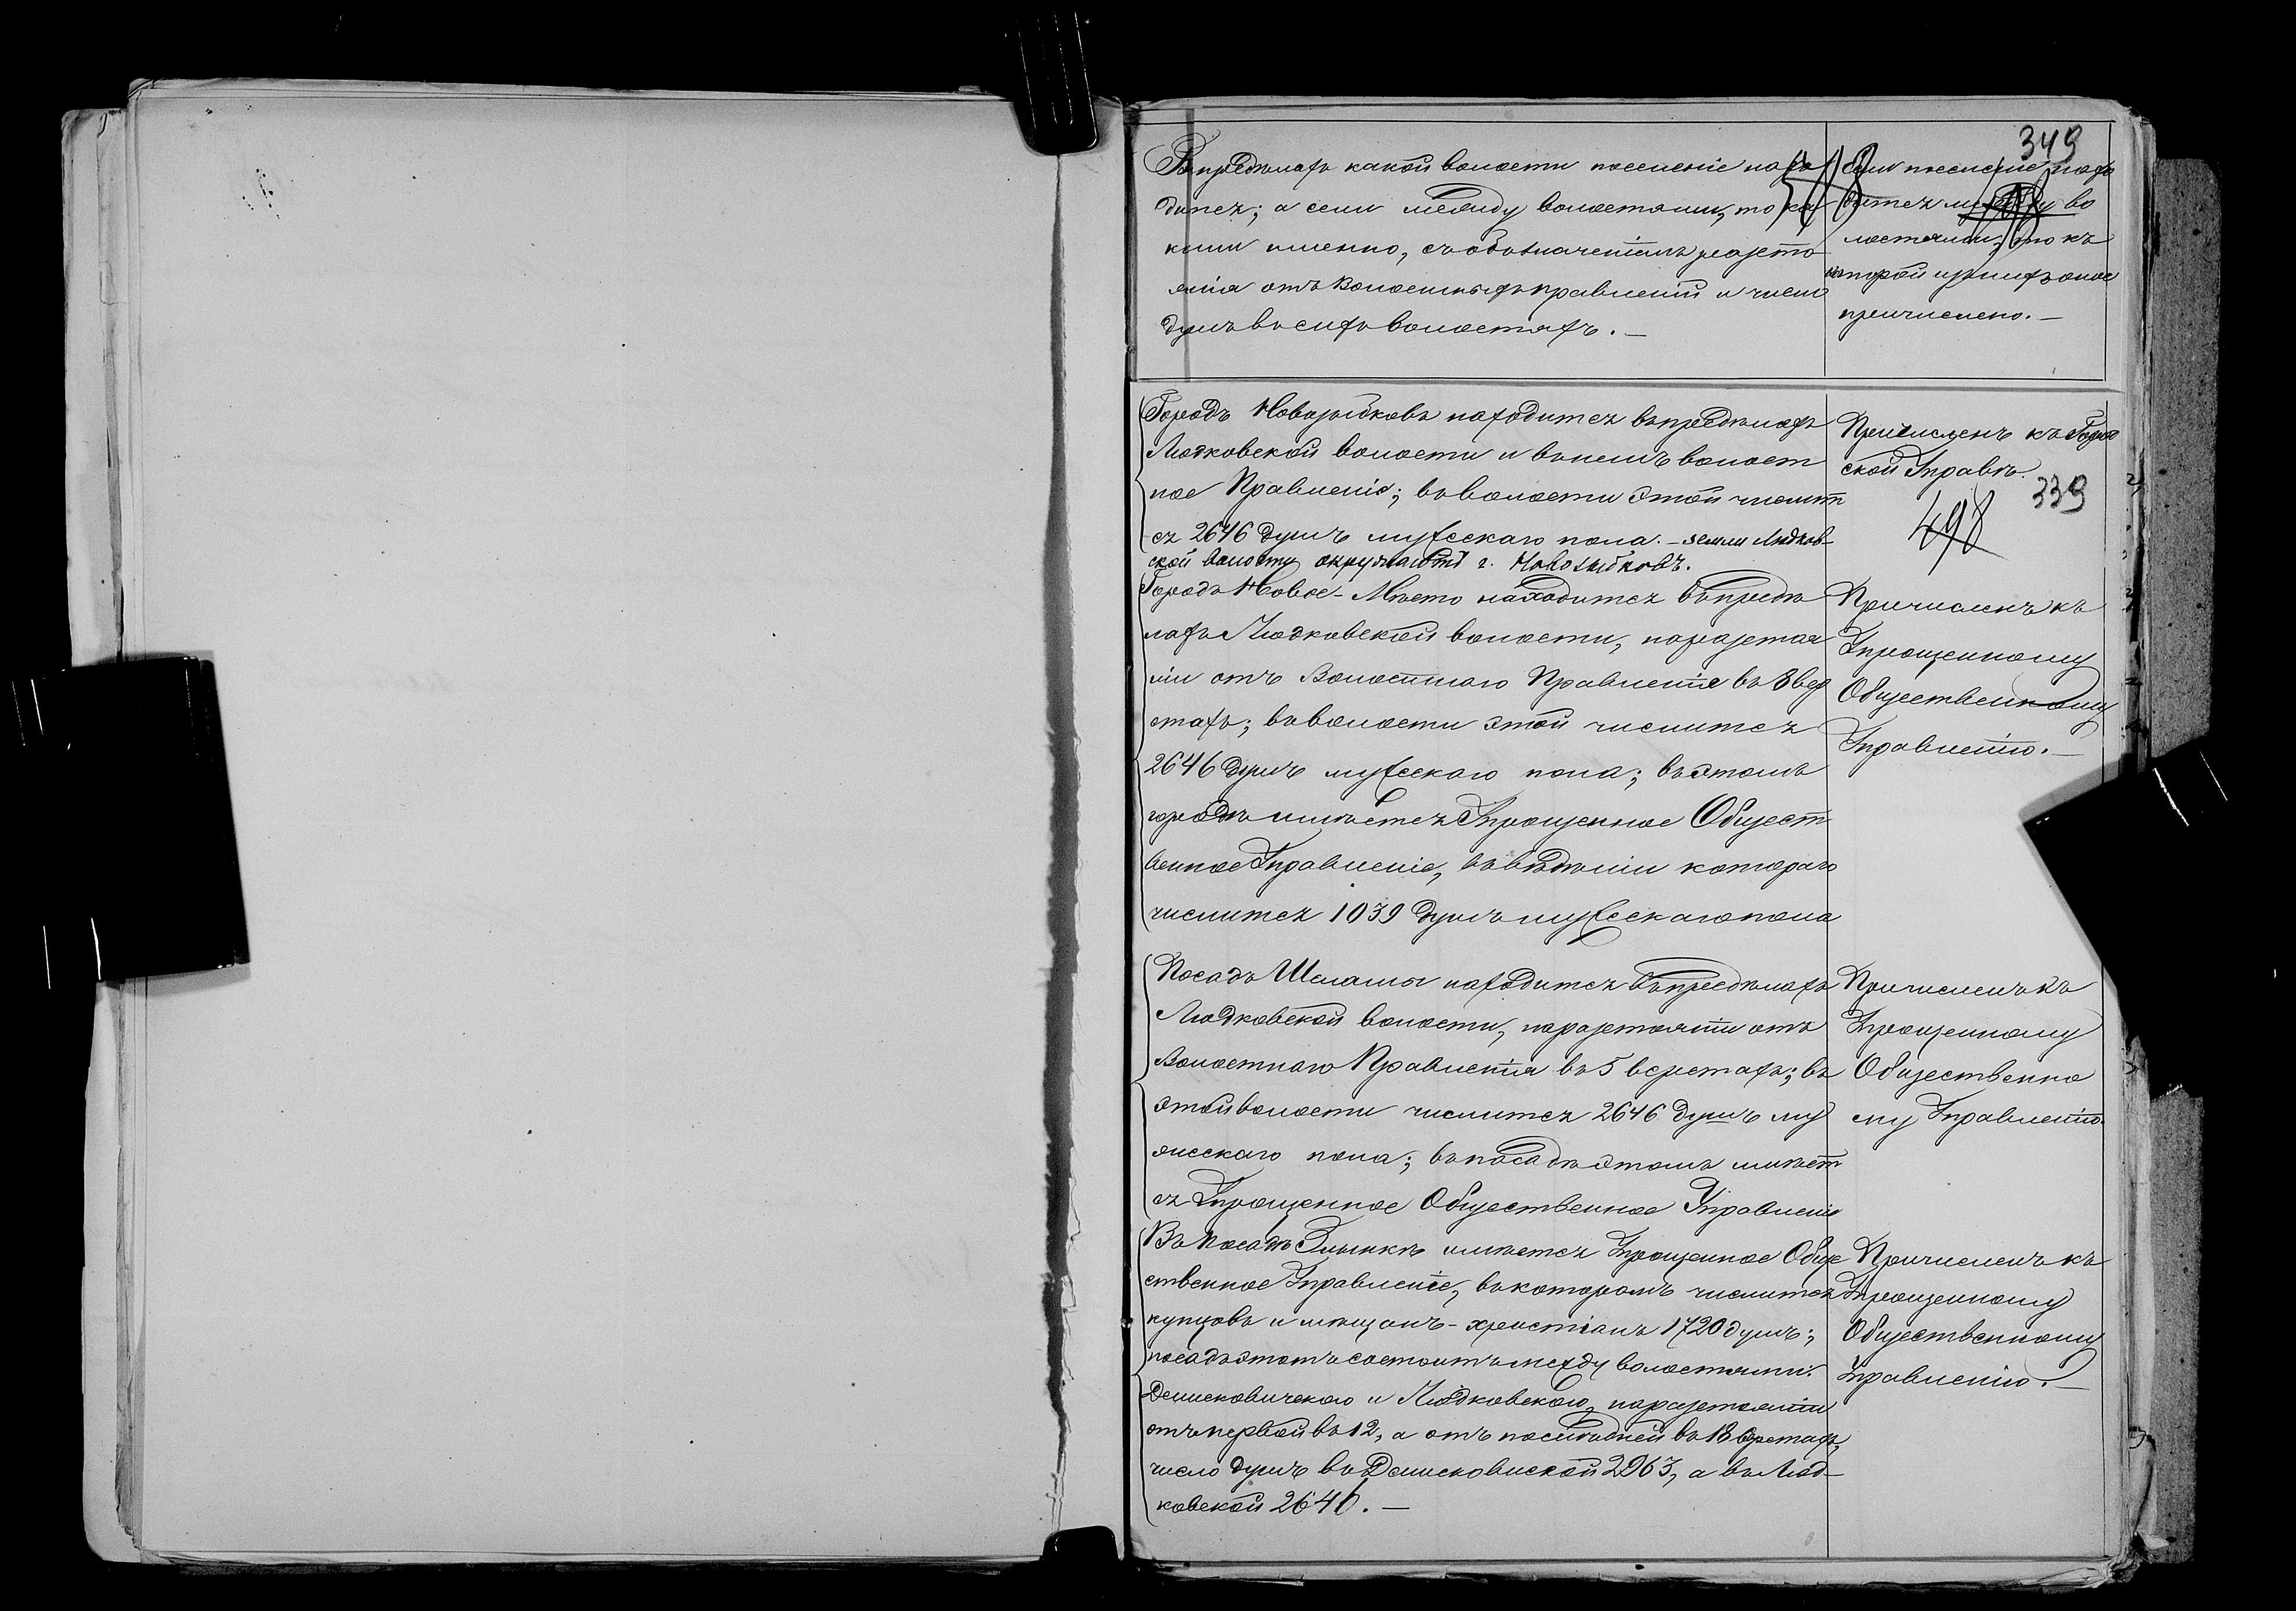 349
Въ предѣлахъ какой волости поселеніе нахо
дится; а если между волостями, то ка
кими именно, съ обозначеніемъ разсто
янія отъ Волостныхъ правленій и число
душъ въ сихъ волостяхъ. —
Если поселеніе нахо
дится между во
лостями, то къ
которой изъ нихъ оное
причислено. —
Городъ Новозыбковъ находится въ предѣлахъ
Людковской волости и въ немъ волост
ное Правленіе; въ волости этой числит
ся 2646 душъ мужескаго пола. – земли Людков-
ской волости окружаютъ г. Новозыбковъ.
Причисленъ къ Город
ской Управѣ.
339
498
Городъ Новое-Мѣсто находится въ предѣ
лахъ Людковской волости, на разстоя
ніи отъ Волостнаго Правленія въ 8 вер
стахъ; въ волости этой числится
2646 душъ мужескаго пола; въ этомъ
городѣ имѣется Упрощенное Общест
венное Управленіе, въ вѣдѣніи котораго
числится 1039 душъ мужескаго пола
Причисленъ къ
Упрощенному
Общественному
Управленію. —
Посадъ Шеламы находится въ предѣлахъ
Людковской волости, на разстояніи отъ
Волостнаго Правленія въ 5 верстахъ; въ
этой волости числится 2646 душъ му
жескаго пола; въ посадѣ этомъ имѣет
ся Упрощенное Общественное Управленіе
Причисленъ къ
Упрощенному
Общественно
му Управленію.
Въ посадѣ Злынкѣ имѣется Упрощенное Обще
ственное Управленіе, въ которомъ числится
купцовъ и мѣщанъ-христіанъ 1720 душъ;
посадъ этотъ состоитъ между волостями:
Денисковичскою и Людковскою, на разстояніи
отъ первой въ 12, а отъ послѣдней въ 18 верстахъ,
число душъ въ Денисковиской 2963, а въ Люд-
ковской 2646. —
Причисленъ къ
Упрощенному
Общественному
Управленію. —